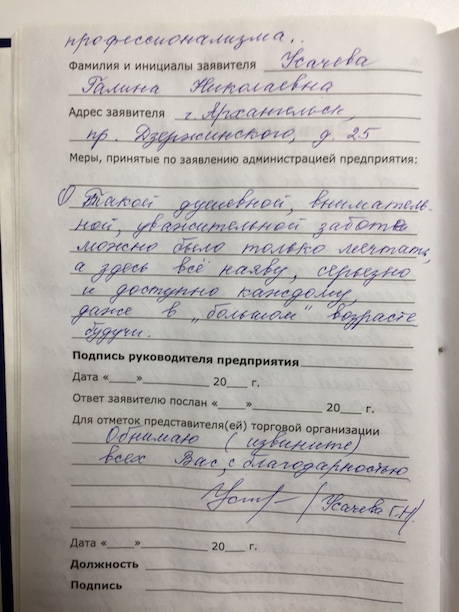 профессионализма..
Фамилия и инициалы заявителя Усачева
Галина Николаевна
Адрес заявителя г. Архангельск,
пр. Дзержинского, д. 25
Меры, принятые по заявлению администрацией предприятия:
Такой душевной, вниматель-
ной, уважительной заботе
можно было только мечтать,
а здесь всё наяву, серьезно
и доступно каждому,
даже в „большом" возрасте
будучи.
Подпись руководителя предприятия
Дата «____»__________ 20___ г.
Ответ заявителю послан «____»__________ 20___ г.
Для отметок представителя(ей) торговой организации
Обнимаю (извините)
всех Вас, с благодарностью
(Усачева Г.Н)
Дата «____»__________ 20___ г.
Должность
Подпись